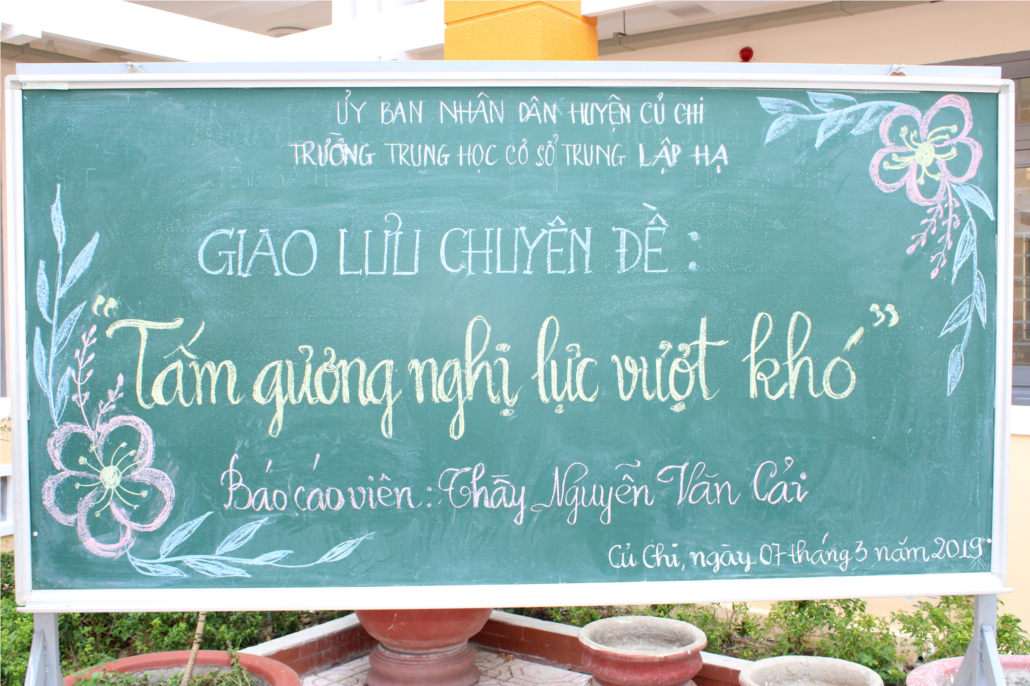 ỦY BAN NHÂN DÂN HUYỆN CỦ CHI
TRƯỜNG TRUNG HỌC CƠ SỞ TRUNG LẬP HẠ
GIAO LƯU CHUYÊN ĐỀ:
"Tấm gương nghị lực vượt khó"
Báo cáo viên: Thầy Nguyễn Văn Cải
Củ Chi, ngày 07 tháng 3 năm 2019